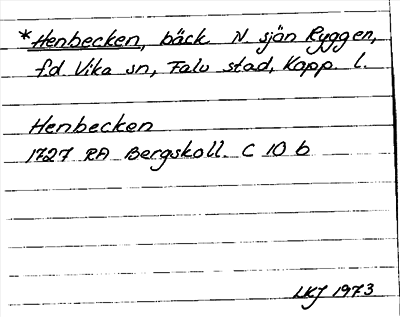 *Henbecken, bäck N. sjön Ryggen,
f.d. Vika sn, Falu stad, Kopp. l.
Henbecken
1727 RA Bergskoll. C 10 b
LKJ 1973